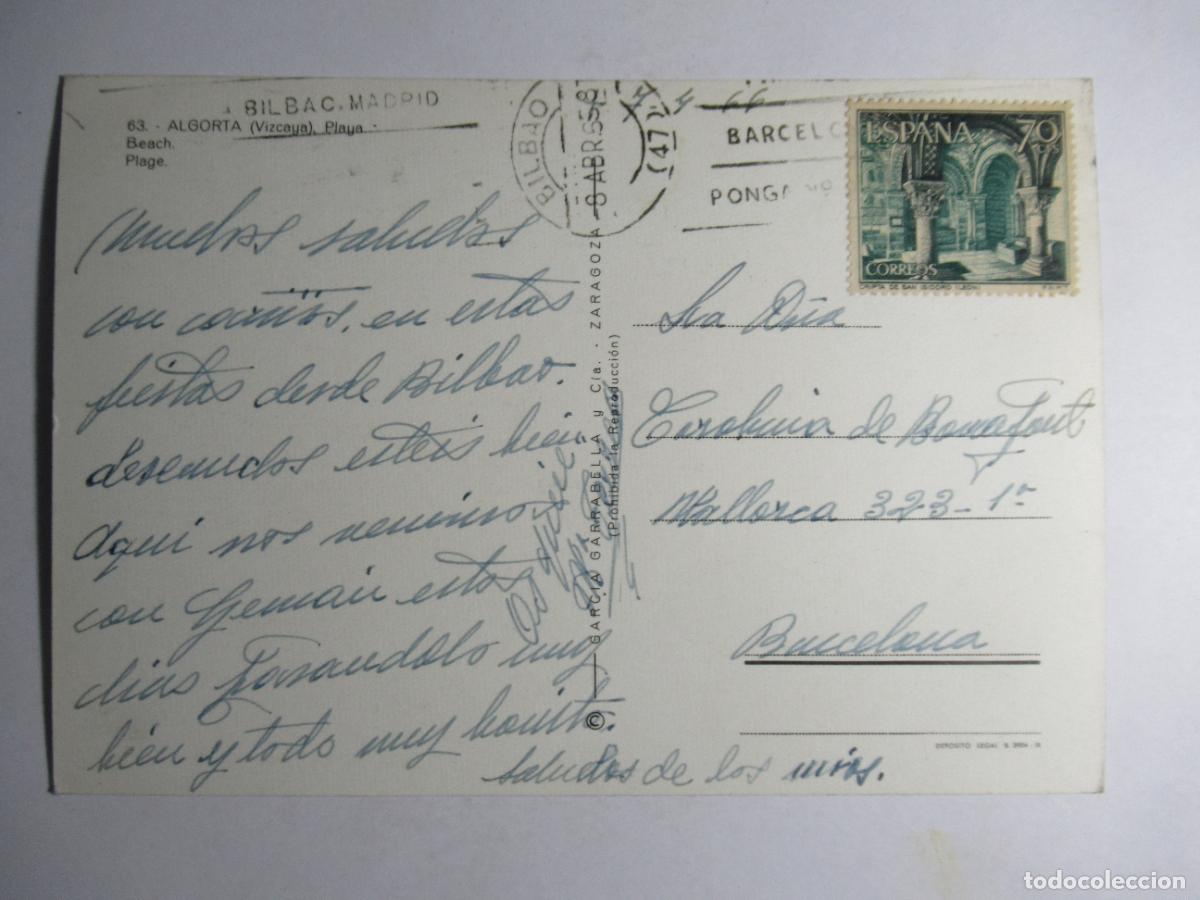 BILBAO, MADRID
63. - ALGORTA (Vizcaya). Playa.
Beach.
Plage.
BILBAO
8 ABR 65
(47)
4 66
BARCELO
PONGA
ESPAÑA 70
CORREOS
CRIPTA DE SAN ISIDORO (LEON)
F.N.M.T.
Muchos saludos
con cariños, en estas
fiestas desde Bilbao.
deseamos esteis bien
aqui nos venimos
con German estos
dias pasandolo muy
bien y todo muy bonito.
saludos de los mios.
GARCÍA GARRABELLA y Cía. - ZARAGOZA
(Prohibida la Reproducción)
©
Sra Dña
Carolina de Bonafont
Mallorca 323-1º
Barcelona
DEPOSITO LEGAL
todocoleccion